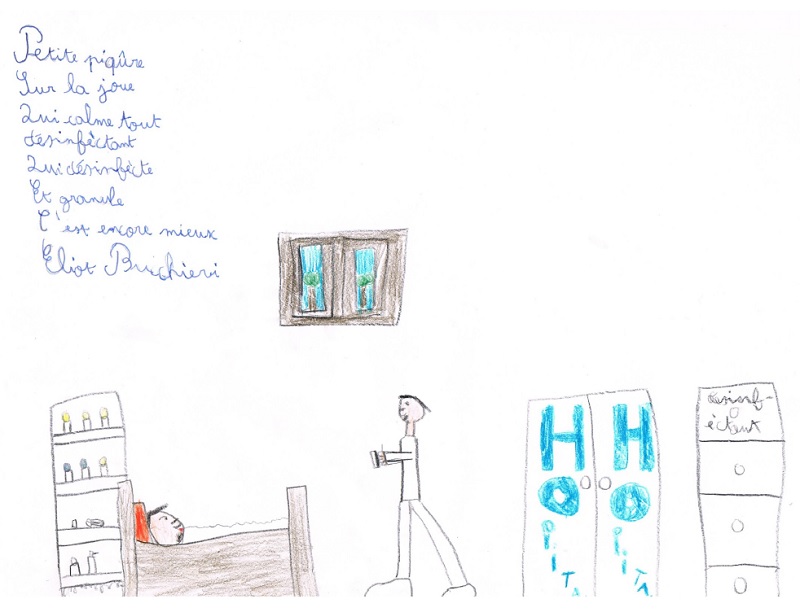 Petite piqûre
Sur la joue
Qui calme tout
désinfèctant
Qui désinfècte
Et granule
C'est encore mieux
Eliot
HOPITA
HOPITA
désinf-
èctant